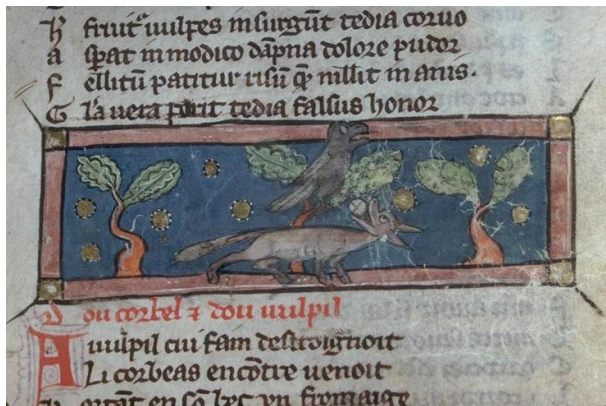 h fruit' uulpes insurgūt tedia coruo
a sꝑat in modico dāpna dolore pudor
F ellitū patitur risū qē mllit inanis.
G la uera parit tedia falsus honor
D ou corbel ⁊ dou uulpil
A uulpil cui fam destroignoit
Li corbeas encōtre uenoit
ortāt en sō bec vn fromaige